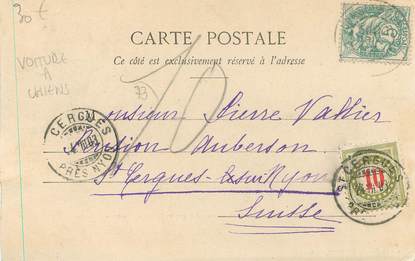 30 €
VOITURE
A
CHIENS
CARTE POSTALE
Ce côté est exclusivement réservé à l'adresse
10
Monsieur Pierre Vathier
Pension Auberson
St Cergues-sur-Nyon
Suisse
CERGUES
PRÈS NYON
ST CERGUES
10